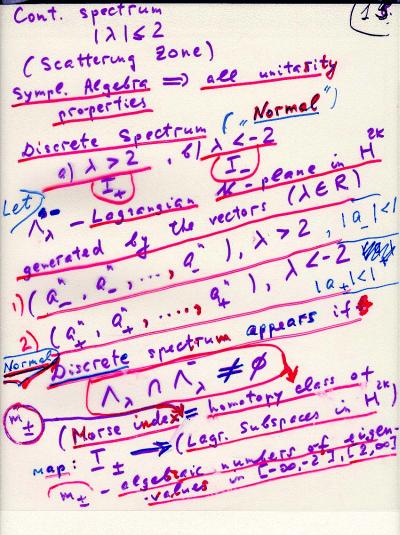 Cont. spectrum
|λ| ≤ 2
(Scattering Zone)
Sympl. Algebra ⟹ all unitarity
properties
("Normal")
Discrete Spectrum
a) λ > 2 , b) λ < -2
I₊ I₋
Let
Λ_λ - Lagrangian k-plane in H^{2k}
generated by the vectors (λ ∈ R)
1) (a₋ⁿ, a₋ⁿ, ...., a₋ⁿ), λ > 2, |a₋| < 1
2) (a₊ⁿ, a₊ⁿ, ....., a₊ⁿ), λ < -2 |a₊| < 1
Normal
Discrete spectrum appears if
Λ_λ ∩ Λ⁻_λ ≠ ∅
m± (Morse index = homotopy class of
map: I± → (Lagr. Subspaces in H^{2k})
m± - algebraic numbers of eigen-
values in [-∞, -2], [2, ∞]